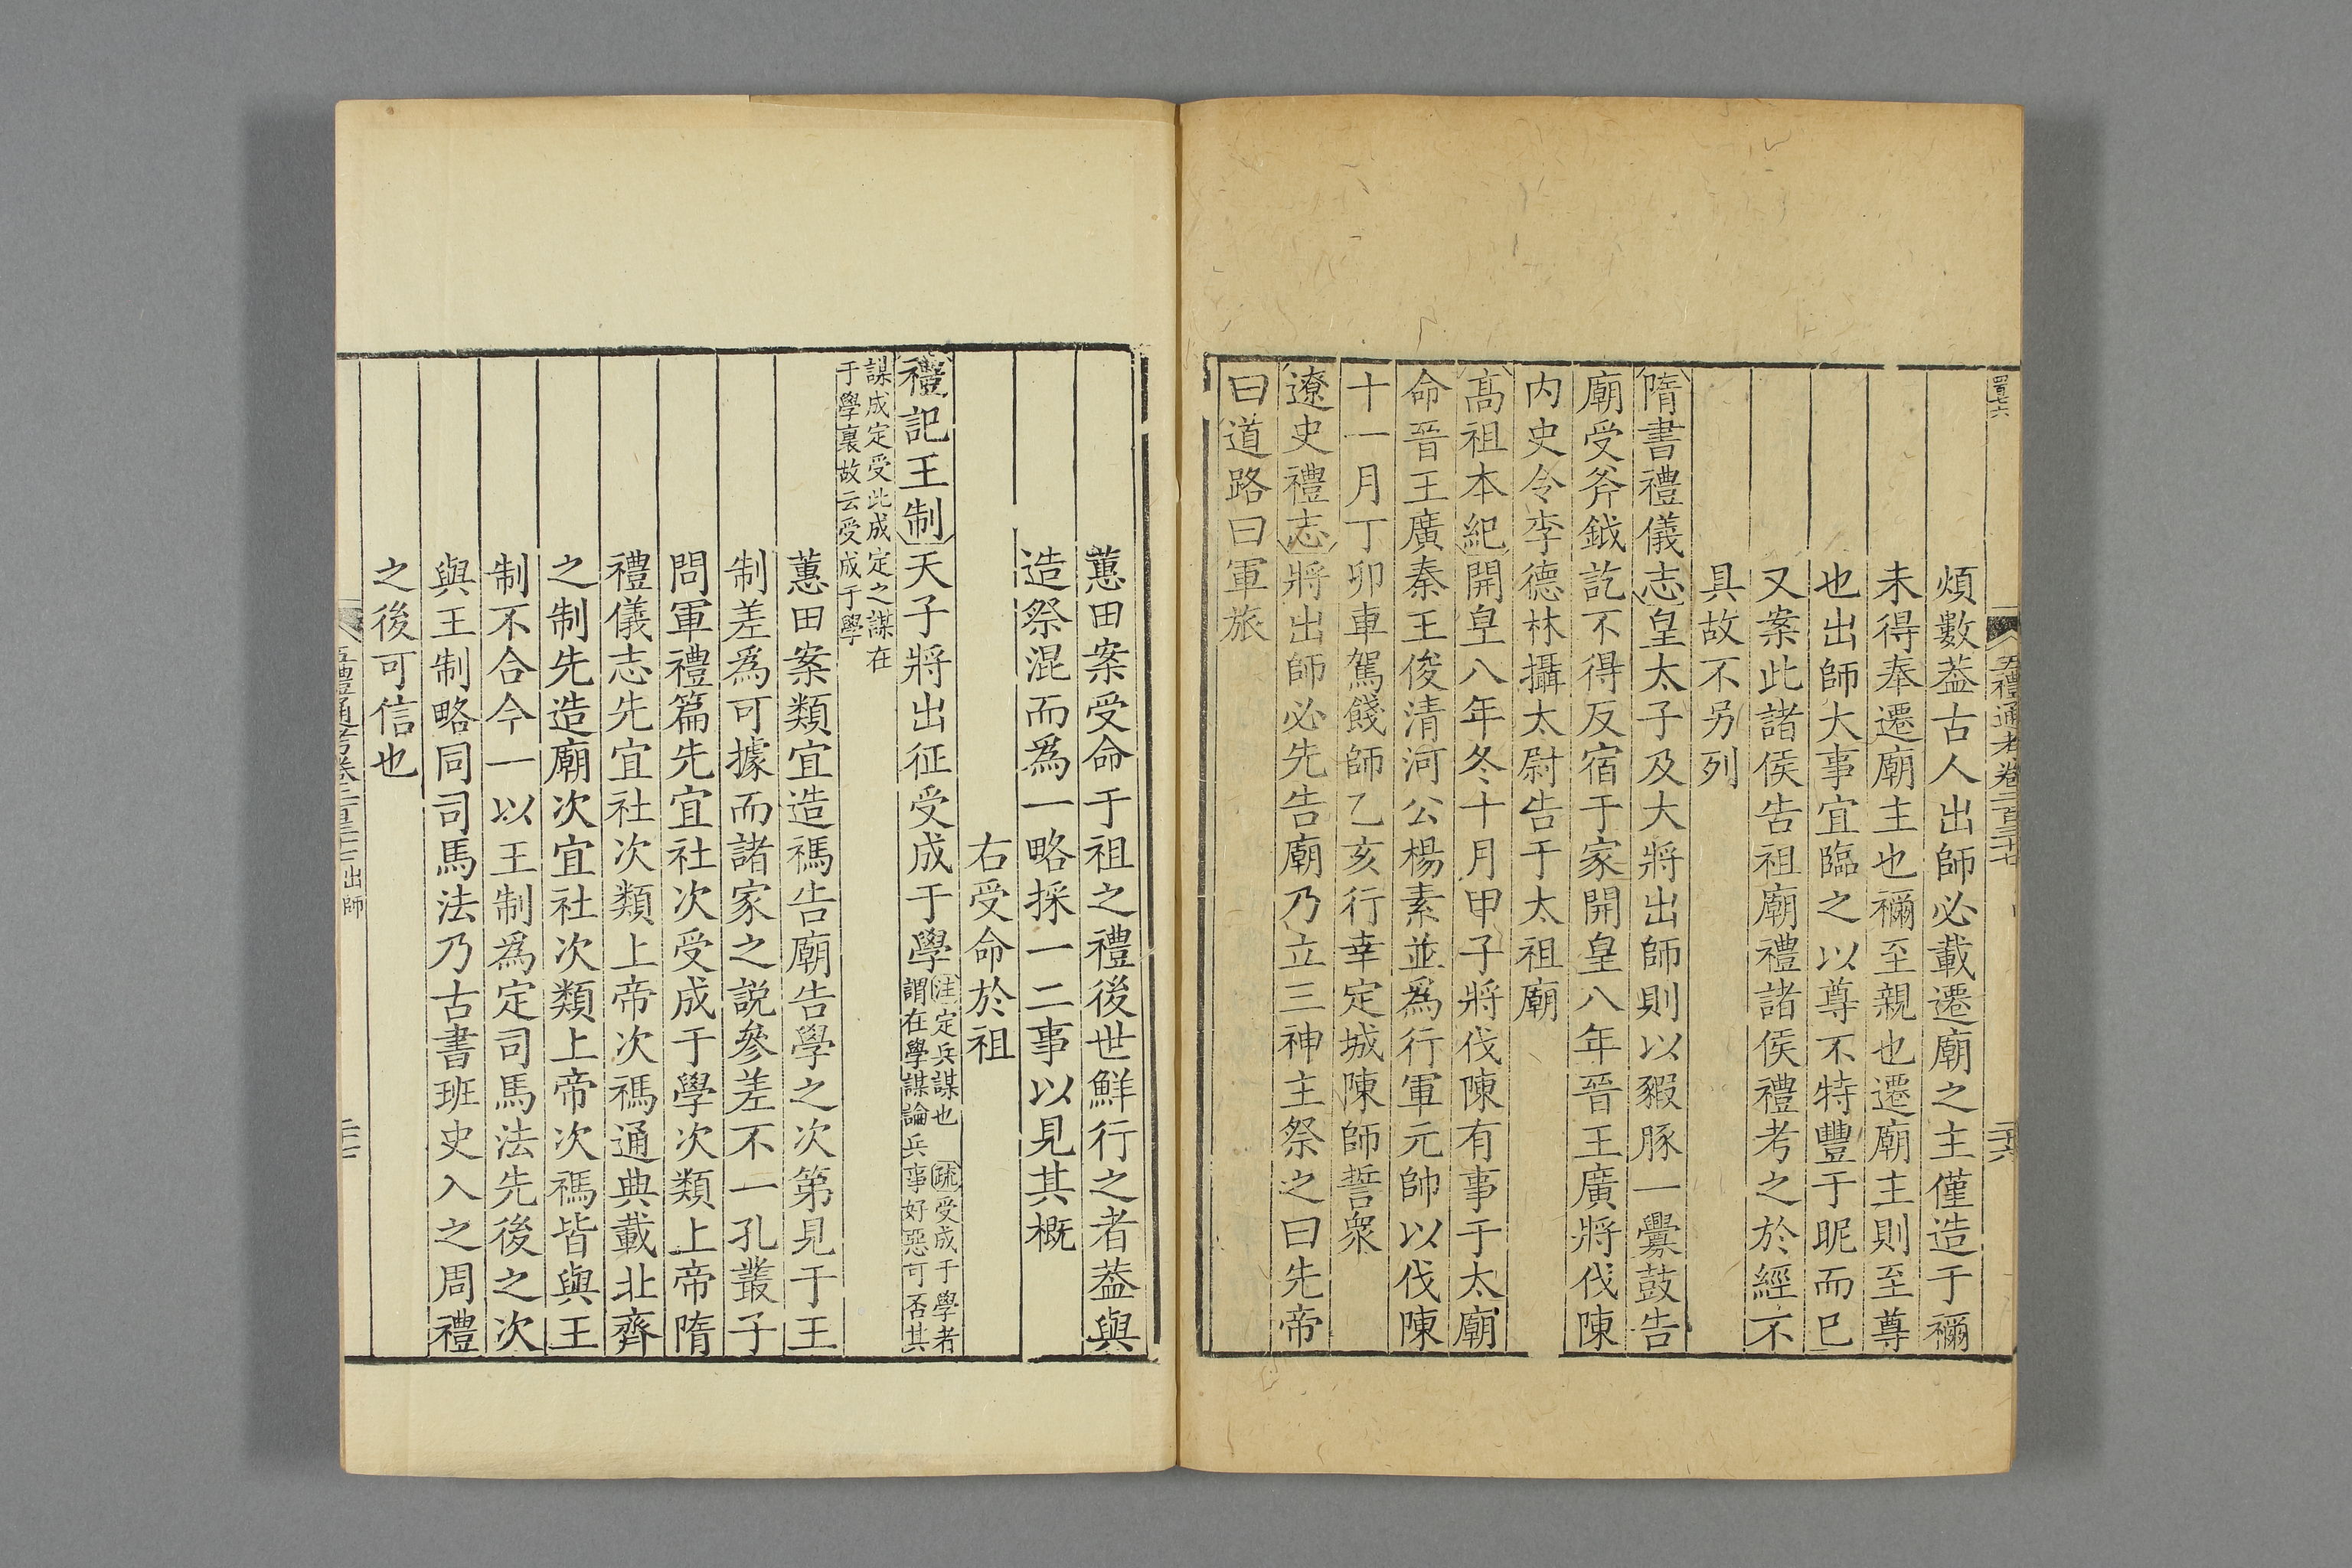 五禮通考卷二百三十七
煩數葢古人出師必載遷廟之主僅造于禰
未得奉遷廟主也禰至親也遷廟主則至尊
也出師大事宜臨之以尊不特豐于昵而已
又案此諸侯告祖廟禮諸侯禮考之於經不
具故不另列
隋書禮儀志皇太子及大將出師則以豭豚一釁鼓告
廟受斧鉞訖不得反宿于家開皇八年晉王廣將伐陳
内史令李德林攝太尉告于太祖廟
高祖本紀開皇八年冬十月甲子將伐陳有事于太廟
命晉王廣秦王俊清河公楊素並爲行軍元帥以伐陳
十一月丁卯車駕餞師乙亥行幸定城陳師誓衆
遼史禮志將出師必先告廟乃立三神主祭之曰先帝
曰道路曰軍旅
蕙田案受命于祖之禮後世鮮行之者葢與
造祭混而爲一略採一二事以見其概
右受命於祖
禮記王制天子將出征受成于學
注定兵謀也　疏受成于學者
謂在學謀論兵事好惡可否其
謀成定受此成定之謀在
于學裏故云受成于學
蕙田案類宜造禡告廟告學之次第見于王
制差爲可據而諸家之說參差不一孔叢子
問軍禮篇先宜社次受成于學次類上帝隋
禮儀志先宜社次類上帝次禡通典載北齊
之制先造廟次宜社次類上帝次禡皆與王
制不合今一以王制爲定司馬法先後之次
與王制略同司馬法乃古書班史入之周禮
之後可信也
出師